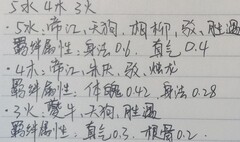 5水 4木 3火
5水：帝江，天狗，相柳，驳，胜遇
羁绊属性：身法0.6，真气0.4
·4木：帝江，朱厌，驳，烛龙
羁绊属性：体魄0.42，身法0.28
·3火：夔牛，天狗，胜遇
羁绊属性：真气0.3，根骨0.2.